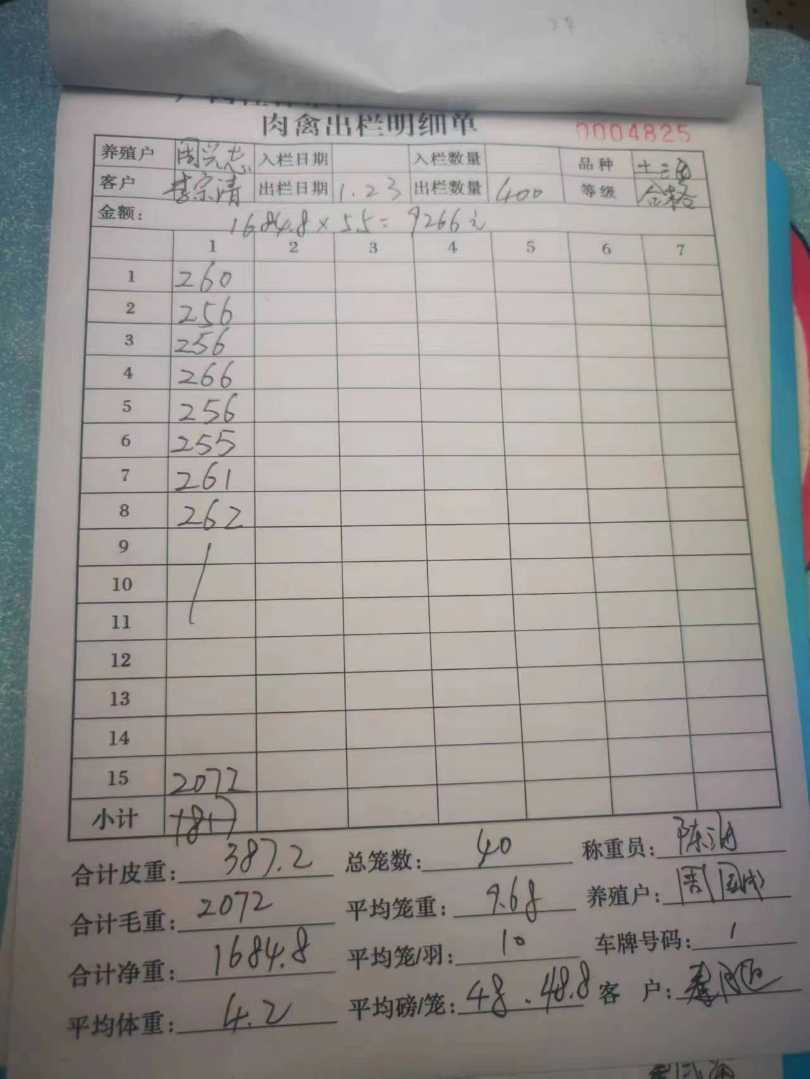 肉禽出栏明细单 0004825
养殖户 周兴志 入栏日期 入栏数量 品种
客户 李宗清 出栏日期 1.23 出栏数量 400 等级 合格
金额: 1684.8×5.5=9266元
1 2 3 4 5 6 7
1 260
2 256
3 256
4 266
5 256
6 255
7 261
8 262
9
10
11
12
13
14
15 2072
小计
合计皮重: 387.2 总笼数: 40 称重员:
合计毛重: 2072 平均笼重: 9.68 养殖户:
合计净重: 1684.8 平均笼/羽: 10 车牌号码: 1
平均体重: 4.2 平均磅/笼: 48.48.8 客 户: